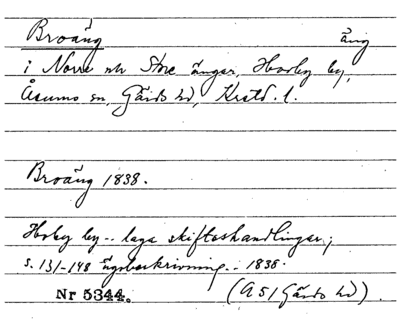 Broäng äng
i Norre och Store ängar, Horby by,
Åsumo sn, Gärds hd, Krstd. l.
Broäng 1838.
Horby by -- laga skifteshandlingar;
s. 131-148 ängsbeskrivning .. 1838.
Nr 5344. (A 51 Gärds hd).